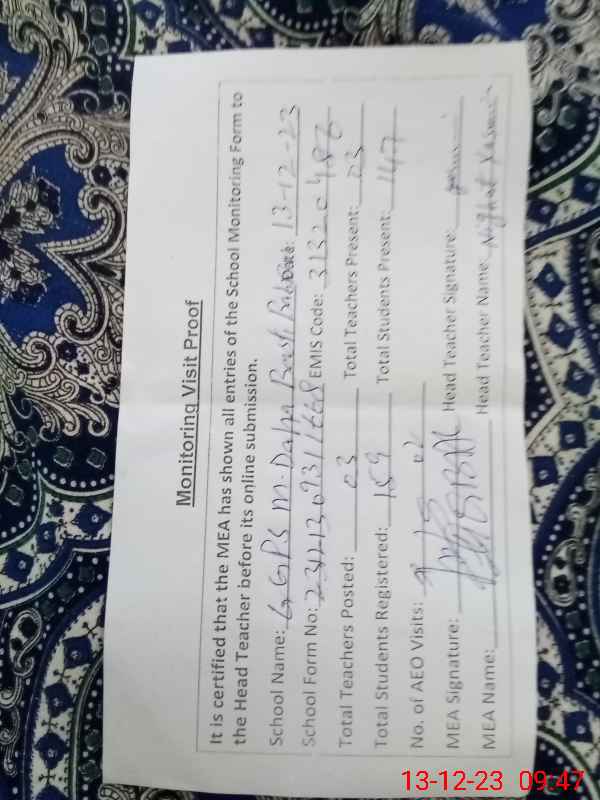 Monitoring Visit Proof
It is certified that the MEA has shown all entries of the School Monitoring Form to
the Head Teacher before its online submission.
School Name: GGPS M. Daha Date: 13-12-23
School Form No: EMIS Code: 31320486
Total Teachers Posted: 03 Total Teachers Present: 03
Total Students Registered: 159 Total Students Present: 147
No. of AEO Visits: 02
MEA Signature: Head Teacher Signature:
MEA Name: Head Teacher Name: Nighat Yasmin
13-12-23 09:47